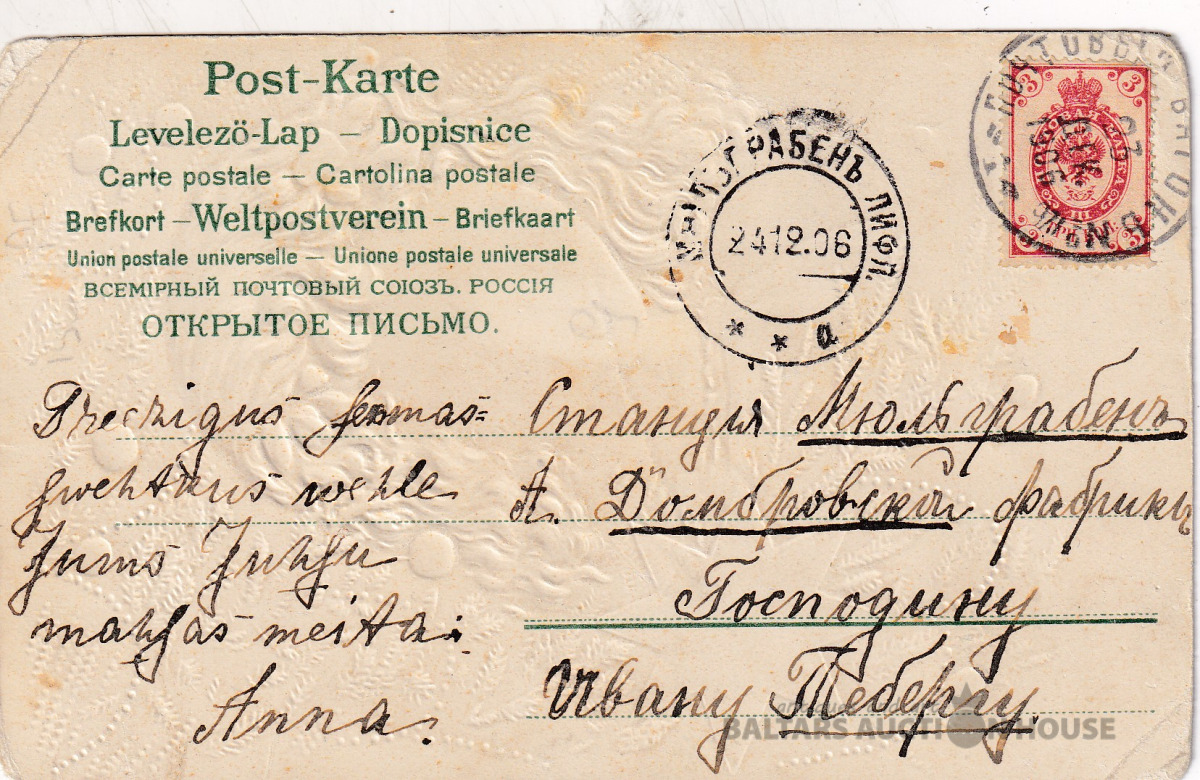 Post-Karte
Levelező-Lap – Dopisnice
Carte postale – Cartolina postale
Brefkort – Weltpostverein – Briefkaart
Union postale universelle – Unione postale universale
ВСЕМІРНЫЙ ПОЧТОВЫЙ СОЮЗЪ. РОССІЯ
ОТКРЫТОЕ ПИСЬМО.
МЮЛЬГРАБЕНЪ ЛИФЛ.
24 12.06
* * а
3 3
3 3
ПОЧТОВЫЙ ВАГОНЪ
1906
Preezigus semas=
swehtkus wehle
Jums Juhsu
mahsas meita:
Anna.
Станция Мюльграбенъ
А. Домбровской фабрики
Господину
Ивану Тебергу.
BALTARS AUCTION HOUSE